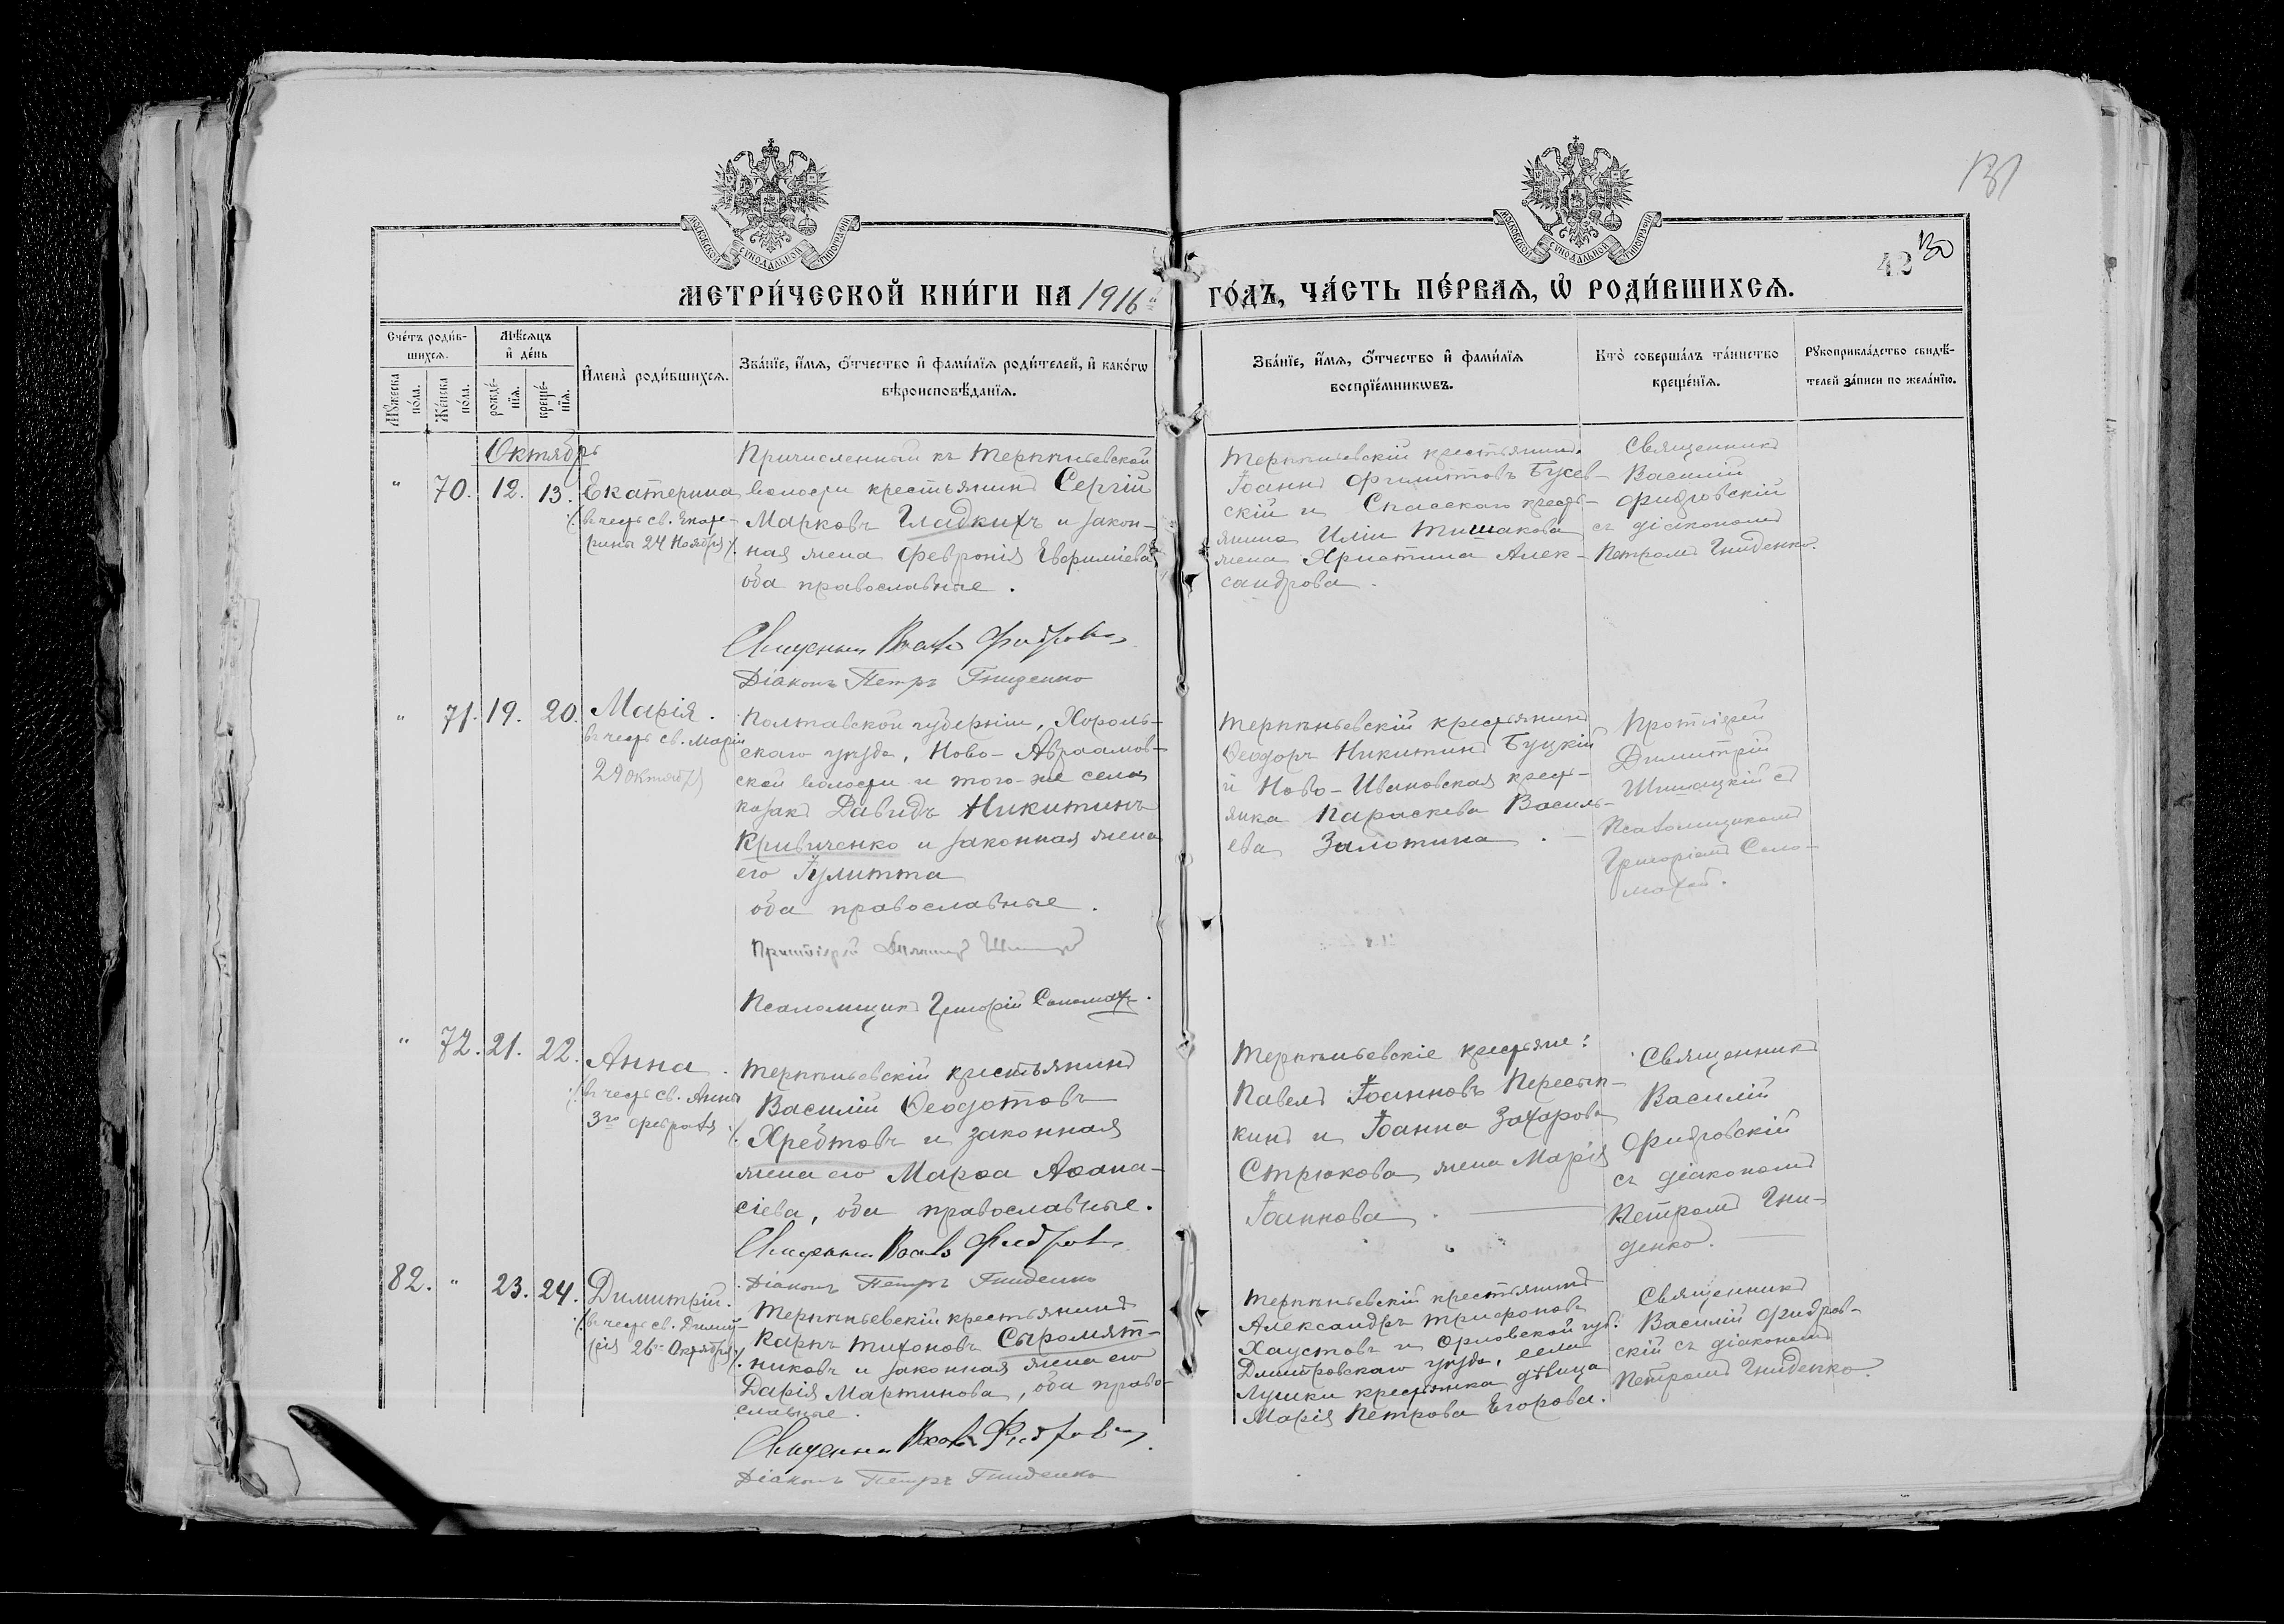 131
42 130
МОСКОВСКОЙ СѴНОДАЛЬНОЙ ТИПОГРАФІИ
МОСКОВСКОЙ СѴНОДАЛЬНОЙ ТИПОГРАФІИ
МЕТРИ́ЧЕСКОЙ КНИ́ГИ НА 1916 й
ГО́ДЪ, ЧА́СТЬ ПЕ́РВАѦ, Ѡ҆ РОДИ́ВШИХСѦ.
Сче́тъ роди́в-
шихсѧ.
Мѹ́жеска
по́ла.
Же́нска
по́ла.
Мѣ́сѧцъ
и҆ де́нь
рожде́-
нїѧ.
креще́-
нїѧ.
И҆мена̀ роди́вшихсѧ.
Зва́нїе, и҆́мѧ, ѻ҆́тчество и҆ фами́лїѧ роди́телей, и҆ како́гѡ
вѣроисповѣ́данїѧ.
Зва́нїе, и҆́мѧ, ѻ҆́тчество и҆ фами́лїѧ
воспрїе́мникѡвъ.
Кто̀ соверша́лъ та́инство
креще́нїѧ.
Рѹкоприкла́дство свидѣ́-
телей за́писи по жела́нїю.
Октябрь
" 70. 12. 13.
Екатерина
(въ честь св. Екате-
рины 24 Ноября).
Причисленный къ Терпѣньевской
волости крестьянинъ Сергій
Марковъ Гладкихъ и закон-
ная жена Февронія Евфиміева
оба православные.
Священникъ Василій Фидровскій
Діаконъ Петръ Гниденко
Терпѣньевскій крестьянинъ
Іоаннъ Филиттовъ Бусев-
скій и Спасскаго кресть-
янина Иліи Тишакова
жена Христина Алек-
сандрова.
Священникъ
Василій
Фидровскій
съ діакономъ
Петромъ Гниденко.
" 71. 19. 20.
Марія.
въ честь св. Маріи
29 октября
Полтавской губерніи, Хороль-
скаго уѣзда, Ново-Авраамов-
ской волости и того-же села
козакъ Давидъ Никитинъ
Кривиченко и законная жена
его Іулитта
оба православные.
Протоіерей Димитрій Шишацкій
Псаломщикъ Григорій Саломаха.
Терпѣньевскій крестьянинъ
Ѳеодоръ Никитинъ Буцкій
и Ново-Ивановская крест-
янка Параскева Василь-
ева Залотина.
Протоіерей
Димитрій
Шишацкій съ
Псаломщикомъ
Григоріемъ Сало-
махой.
" 72. 21. 22.
Анна.
(въ честь св. Анны
3го февраля).
Терпѣньевскій крестьянинъ
Василій Ѳеодотовъ
Хребтовъ и законная
жена его Марѳа Аѳана-
сіева, оба православные.
Священникъ Василій Фидровскій
Діаконъ Петръ Гниденко
Терпѣньевскіе крестьяне:
Павелъ Іоанновъ Пересып-
кинъ и Іоанна Захарова
Стрюкова жена Марія
Іоаннова.
Священникъ
Василій
Фидровскій
съ діакономъ
Петромъ Гни-
денко.
82. " 23. 24.
Димитрій.
(въ честь св. Димит-
рія 26го Октября).
Терпѣньевскій крестьянинъ
Карпъ Тихоновъ Сыромят-
никовъ и законная жена его
Дарія Мартинова, оба право-
славные.
Священникъ Василій Фидровскій
Діаконъ Петръ Гниденко
Терпѣньевскій крестьянинъ
Александръ Трифоновъ
Хаустовъ и Орловской губ.
Дмитровскаго уѣзда, села
Лушки крестьянка дѣвица
Марія Петрова Егорова.
Священникъ
Василій Фидров-
скій съ діакономъ
Петромъ Гниденко.